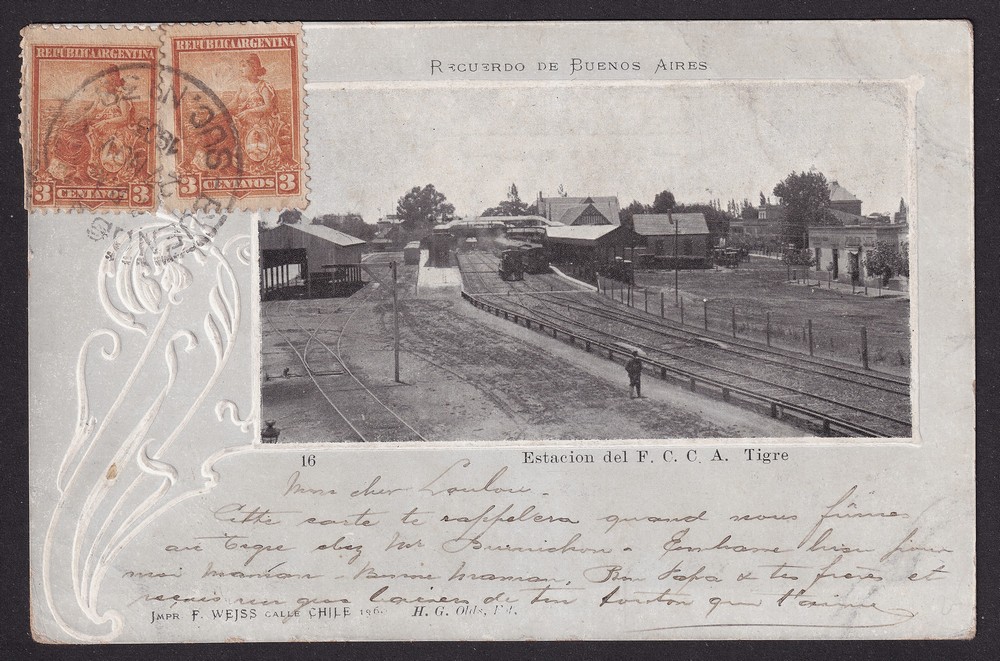 REPUBLICA ARGENTINA
REPUBLICA ARGENTINA
3 CENTAVOS 3
3 CENTAVOS 3
SUC. Nº
RECUERDO DE BUENOS AIRES
16
Estacion del F. C. C. A. Tigre
Mon cher Loulou.
Cette carte te rappelera quand nous fûmes
au Tigre chez Mr - Embrasse bien pour
moi Maman - Bonne Maman, Bon Papa & tes frères et
reçois un gros baiser de ton tonton qui t'aime
IMPR F. WEISS CALLE CHILE 196.
H. G. Olds, Fot.